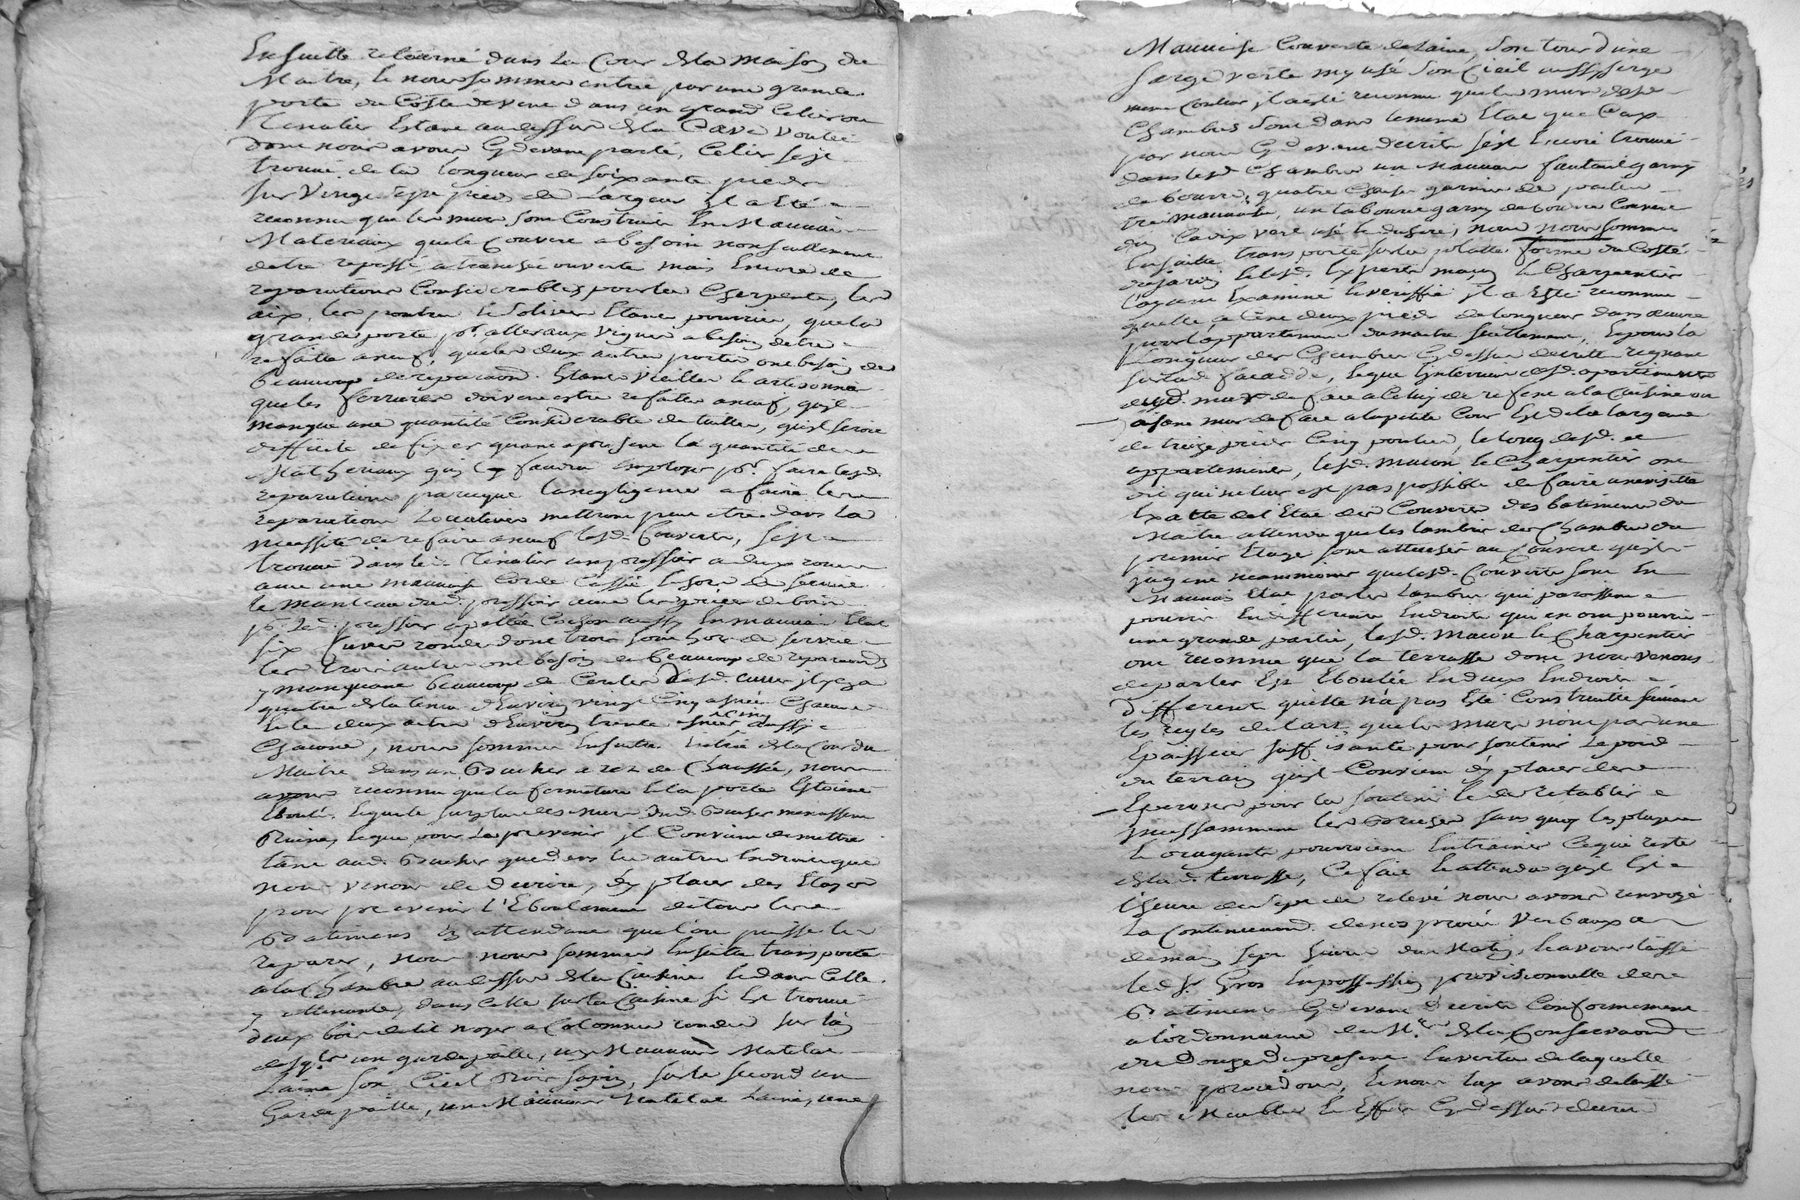 Ensuitte retourné dans la Cour de la maison du
Maitre, & nous sommes entrée par une grande
porte du Costé de vene dans un grand Celier ou
Tenalier Estant au dessus de la Cave Voutée
dont nous avons Cydevant parlé, Celier s'est
trouvé de la longueur de soixante pieds
sur vingt sept pieds de Largeur Il a Eté
reconnu que les murs sont Construits En Mauvais
Materiaux que le Couvert a besoin non seullement
detre repassé a tranchée ouverte mais Encore de
reparations Considerables pour la Charpente, les
aix, les poutres & Solives Etant pourries, que la
grande porte pr. aller aux Vignes a besoin detre
refaitte a neuf, que les deux autres portes ont besoin de
beaucoup de reparaons. Etant Vieilles &
que les ferrures doivent estre refaites a neuf, quil
manque une quantité Considerable de tuilles, quil seroit
difficile de fixer quant a present la quantité des
Matheriaux quil faudra Employer pr. faire lesd.
reparations parceque la negligence a faire les
reparations Locatives mettront peut etre dans la
necessité de refaire a neuf lesd. Couverts, s'est
trouvé dans le Tenalier un pressoir a deux roues
avec une mauvaise Corde Cassée & hors de service
le manteau dud. pressoir avec les pieces de bois
pr. led. pressoir apellé Cochon aussy En mauvais Etat
six Cuves rondes dont trois sont hors de service
les trois autres ont besoin de beaucoup de reparaons
y manquant beaucoup de Cercles desd. Cuves il y en a
quatre de la tenue d'Environ vingt Cinq asnées Chacune
& les deux autres d'Environ trente asnées aussi
Chacune, nous sommes Ensuitte Entrée de la Cour du
Maitre dans un Bucher a rez de Chaussée, nous
avons reconnu que la fermeture & la porte Estoient
Eboulé, & que le surplus des murs dud. Bucher menassent
Ruine, & que pour la prevenir il Convient de mettre
tant aud. Bucher que dans les autres Endroits que
nous venons de decrire, d'y placer des Etays
pour prevenir l'Eboulement de tous les
Batiments En attendant que l'on puisse les
reparer, nous nous sommes Ensuitte transportés
a la Chambre au dessus de la Cuisine & dans Celle
y attenante, dans Celle sur la Cuisine si Est trouvé
deux bois de lit noyer a Colonnes rondes sur l'un
desqls. un gardepaille, un Mauvais Matelat
Laine son Ciel Bois sapin, sur le second un
Gardepaille, un Mauvais Matelat Laine, une
Mauvaise Couverte de Laine, son tour d'une
Serge verte my usé son Ciel aussy serge
meme Couleur il a eté reconnu que les murs desd.
Chambres sont dans le meme Etat que Ceux
par nous Cydevant decrits s'est Encore trouvé
dans lesd. Chambres un Mauvais fauteuil garny
de bourre, quatre Chaises garnies de paille
tres mauvaises, un tabouret garny de bourre Couvert
du Cadix vert usé & dechiré, nous nous sommes
Ensuitte transportés sur la platte forme du Costé
du jardin & lesd. Experts maçon & Charpentier
l'ayant Examiné & veriffié il a Esté reconnu
quelle a Cent deux pieds de longueur dans œuvre
pour l'appartement du maitre seullement, & pour la
Longueur des Chambres Cydessus decrittes regnant
sur lad. facadde, & que l'interieur desd. apartements
dud. mur de face a celuy de refend a la Cuisine ou
a son mur de face a la petite Cour Est de la largeur
de treize pieds Cinq pouces, le long desd.
appartements, lesd. macon & Charpentier ont
dit quil ne leur est pas possible de faire une visitte
Exatte de l'Etat des Couverts des batiments du
Maitre attendu que les lambris des Chambres du
premier Etage sont attachés au Couvert quils
jugent neammoins que lesd. Couverts sont En
Mauvais Etat par les Lambris qui paroissent
pourris En differents Endroits que en ont pourri
une grande partie, lesd. Macon & Charpentier
ont reconnu que la terrasse dont nous venons
de parler Est Eboulée En deux Endroits
differents quelle n'a pas Eté Construitte suivant
les regles de l'art, que les murs n'ont pas une
Epaisseur suffisante pour soutenir Le poid
du terrain quil Convient d'y placer des
Eperons pour la soutenir & de retablir
incessamment les Breches sans quoy les pluyes
& oragants pourroient Entrainer Ce qui reste
de lad. terrasse, Ce fait & attendu quil Est
l'heure de sept de relevé nous avons renvoyé
La Continuaon. de nos procés Verbaux a
demain sept heures du Matin, & avons laissé
led. Sr. Gros En possession provisionnelle des
Batiments Cydevant decrits Conformement
a l'ordonnance de Mrs. de la Conservaon
du Douze du present En vertu de laquelle
nous procedons, & nous luy avons delaissé
les Meubles & Effets Cydessus decrits